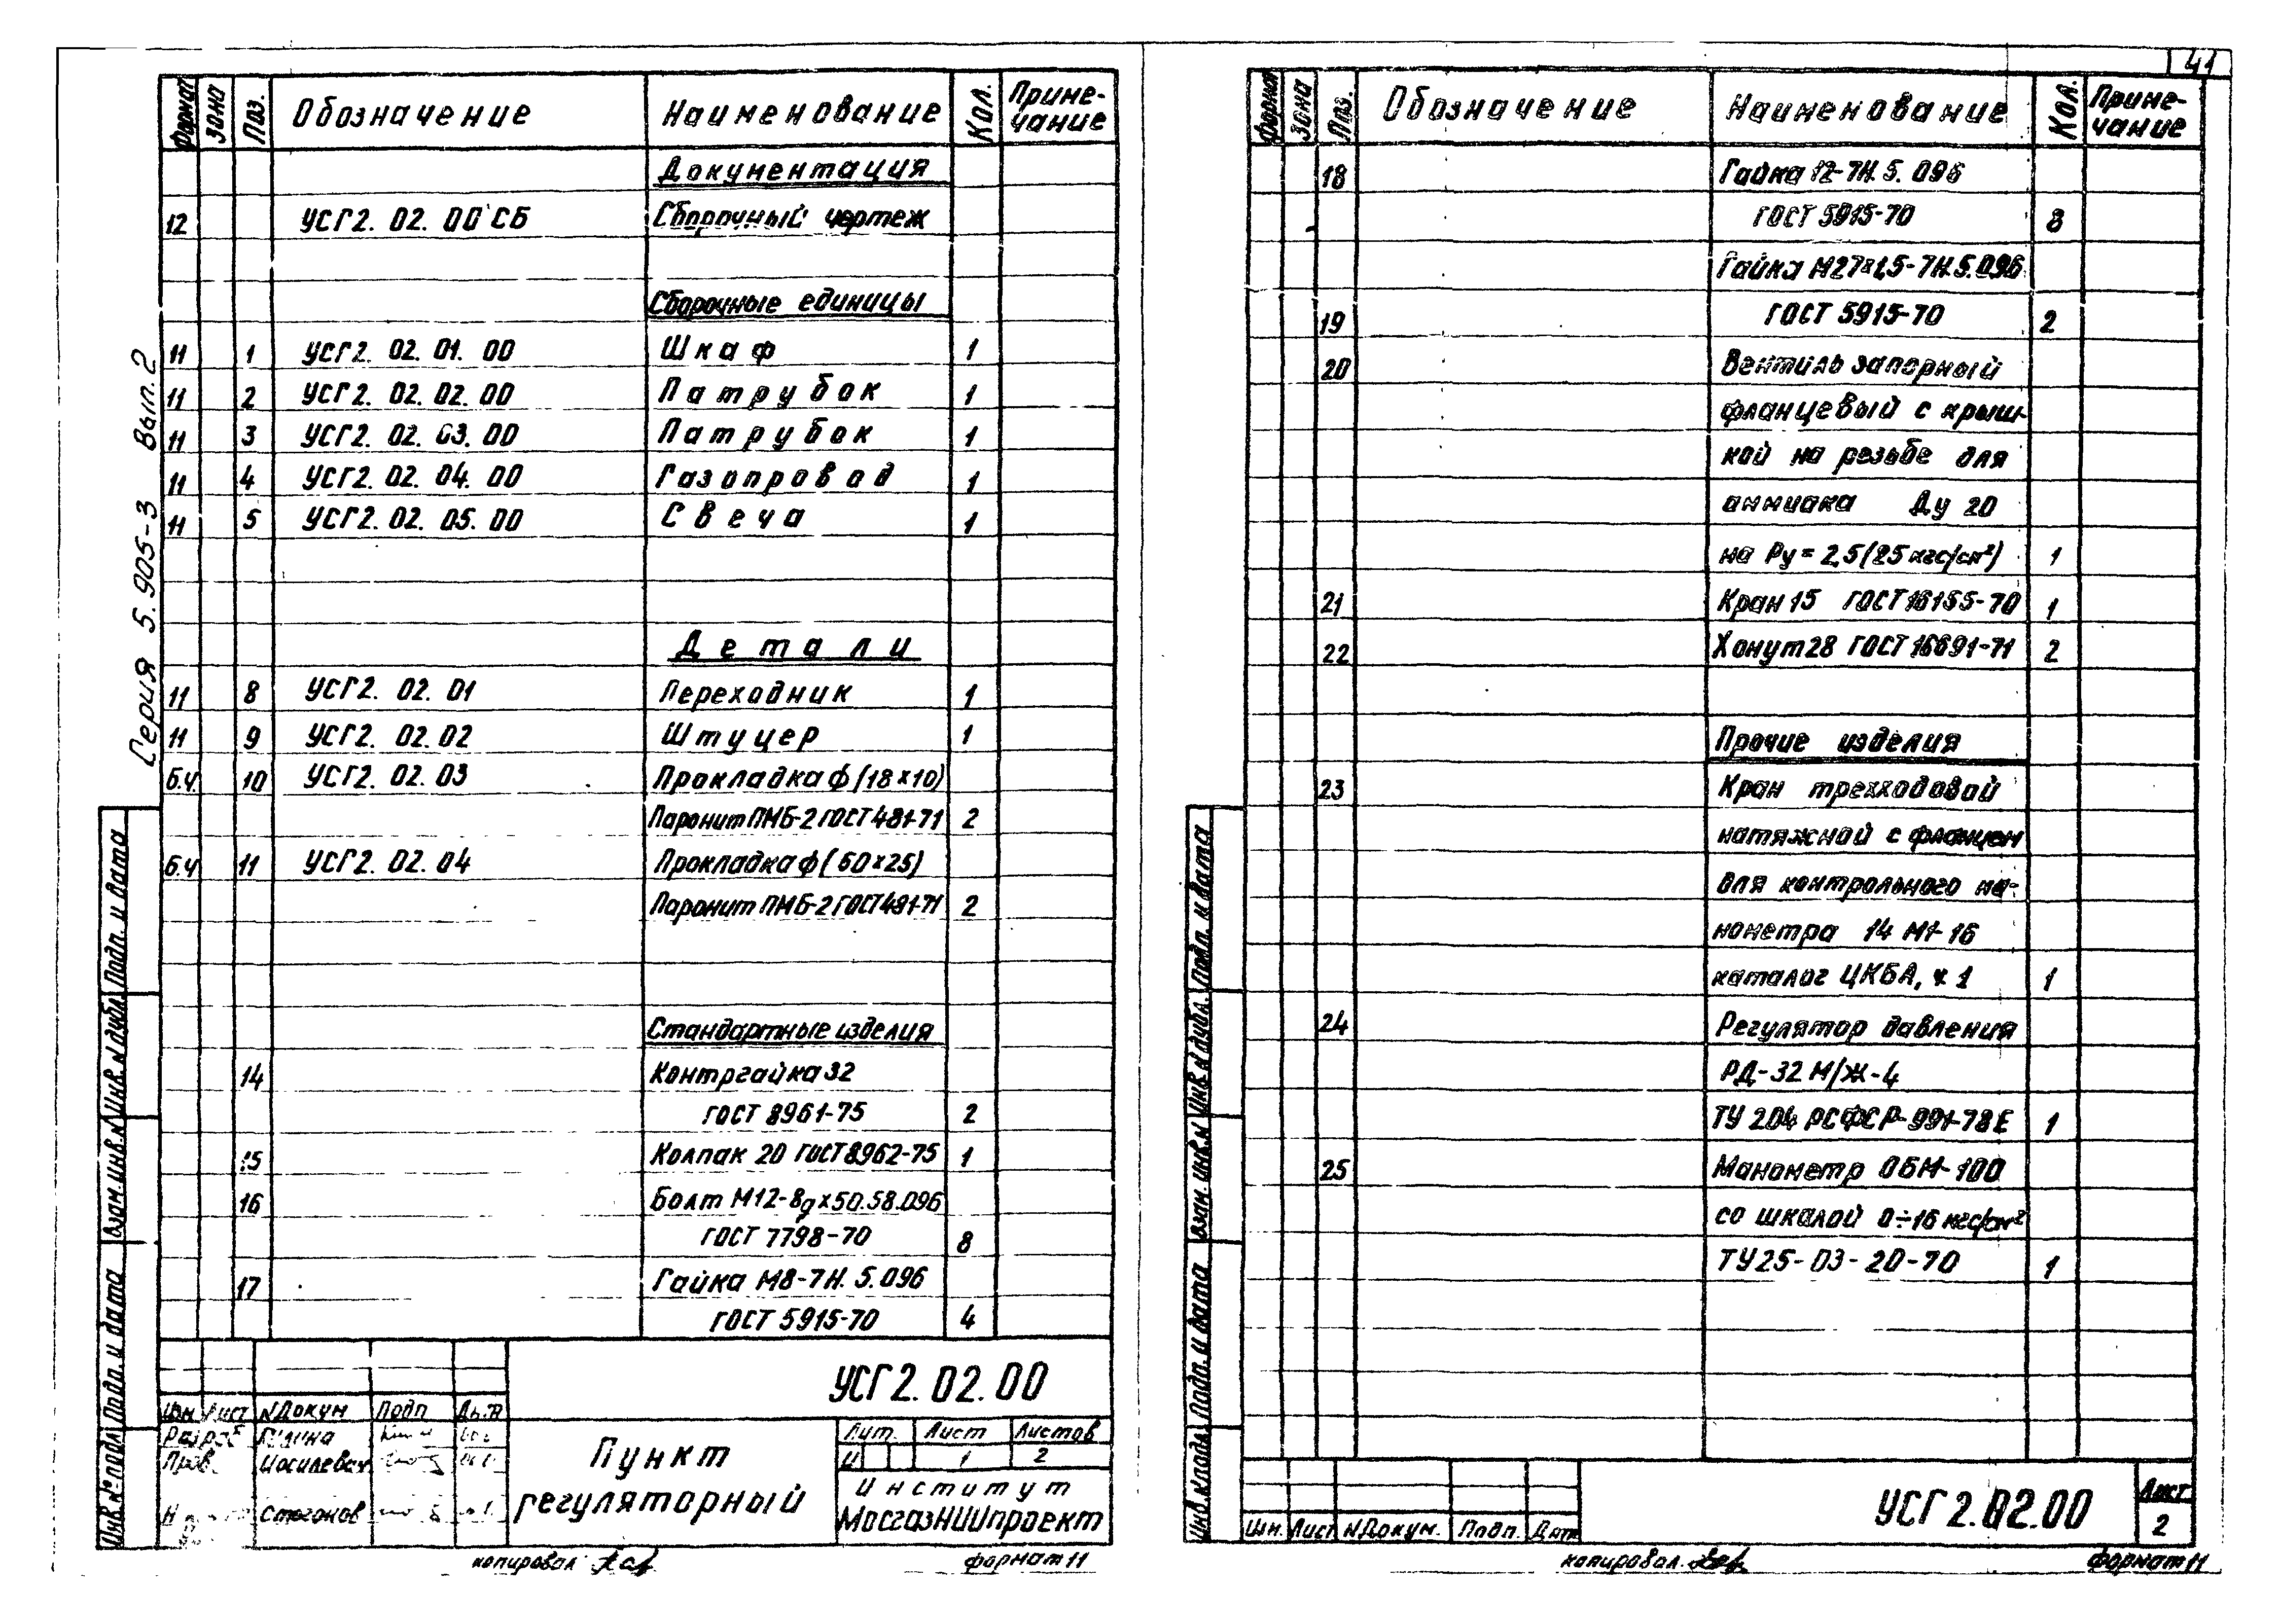 41
Серия 5.905-3 Вып. 2
Формат Зона Поз. Обозначение Наименование Кол. Приме-
чание
Документация
12 УСГ2. 02. 00 СБ Сборочный чертеж
Сборочные единицы
11 1 УСГ2. 02. 01. 00 Шкаф 1
11 2 УСГ2. 02. 02. 00 Патрубок 1
11 3 УСГ2. 02. 03. 00 Патрубок 1
11 4 УСГ2. 02. 04. 00 Газопровод 1
11 5 УСГ2. 02. 05. 00 Свеча 1
Детали
11 8 УСГ2. 02. 01 Переходник 1
11 9 УСГ2. 02. 02 Штуцер 1
б.ч. 10 УСГ2. 02. 03 Прокладка ф (18×10)
Паронит ПМБ-2 ГОСТ 481-71 2
б.ч 11 УСГ2. 02. 04 Прокладка ф (60×25)
Паронит ПМБ-2 ГОСТ 481-71 2
Стандартные изделия
14 Контргайка 32
ГОСТ 8961-75 2
15 Колпак 20 ГОСТ 8962-75 1
16 Болт М12-8g×50.58.096
ГОСТ 7798-70 8
17 Гайка М8-7Н. 5. 096
ГОСТ 5915-70 4
УСГ2. 02. 00
Изм Лист №Докум Подп Дата
Разраб
Пров. Иосилевич
Н Стоганов
Пункт
регуляторный
Лит. Лист Листов
И 1 2
Институт
МосгазНИИпроект
копировал
формат 11
Инв.№ подл. Подп. и дата Взам. инв.№ Инв.№ дубл. Подп. и дата
Формат Зона Поз. Обозначение Наименование Кол. Приме-
чание
18 Гайка 12-7Н. 5. 096
ГОСТ 5915-70 8
Гайка М27×1,5-7Н.5.096
19 ГОСТ 5915-70 2
20 Вентиль запорный
фланцевый с крыш-
кой на резьбе для
аммиака Ду 20
на Ру = 2,5 (25 кгс/см²) 1
21 Кран 15 ГОСТ 16155-70 1
22 Хомут 28 ГОСТ 16691-71 2
Прочие изделия
23 Кран трехходовой
натяжной с фланцем
для контрольного ма-
нометра 14 М1-16
каталог ЦКБА, ч 1 1
24 Регулятор давления
РД-32 М/Ж-4
ТУ 204 РСФСР-991-78Е 1
25 Манометр ОБМ-100
со шкалой 0÷16 кгс/см²
ТУ25-03-20-70 1
УСГ2.02.00
Лист
2
Изм. Лист №Докум. Подп. Дат
копировал.
формат 11
Инв.№ подл. Подп. и дата Взам. инв.№ Инв.№ дубл. Подп. и дата